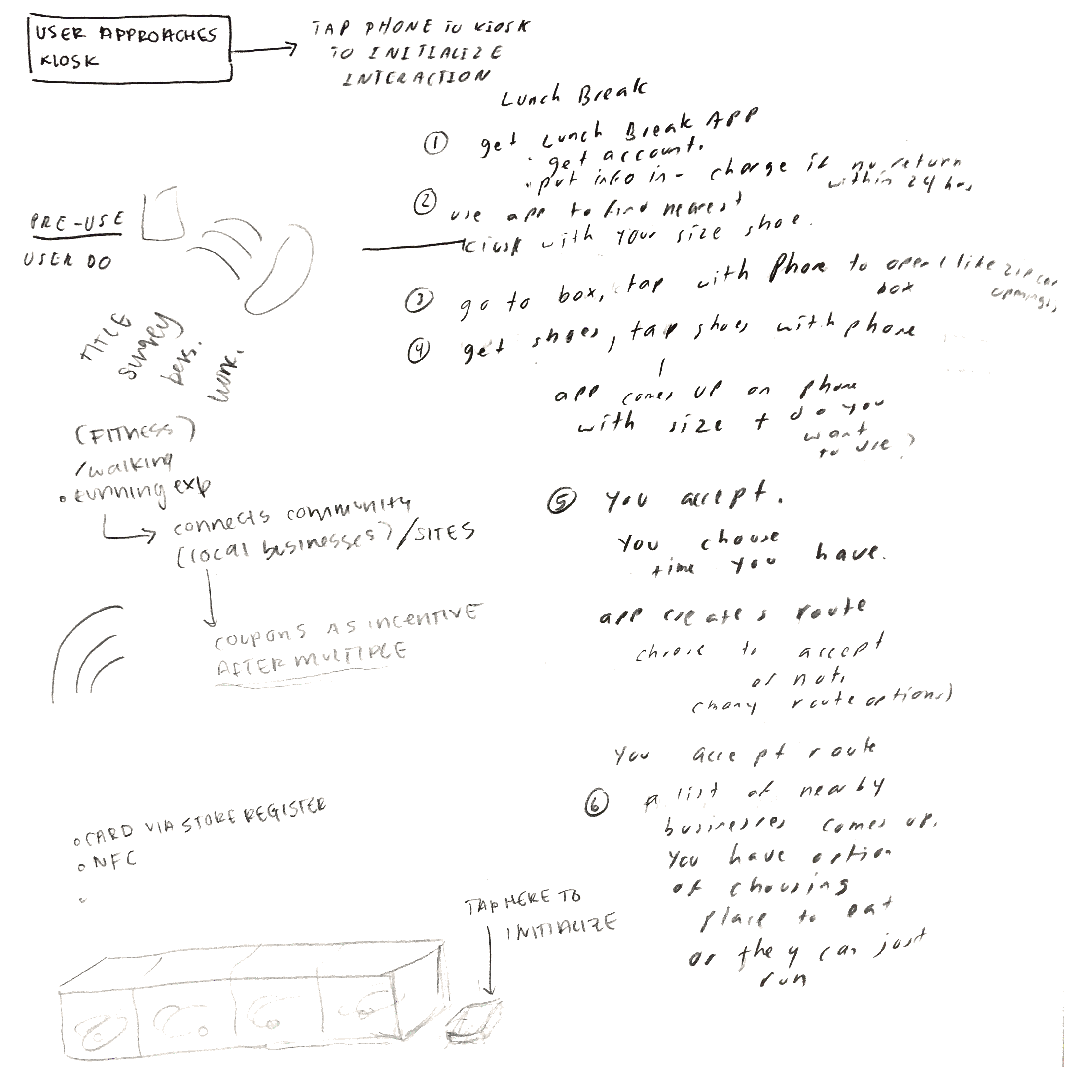 USER APPROACHES
KIOSK
TAP PHONE TO KIOSK
TO INITIALIZE
INTERACTION
Lunch Break
① get Lunch Break APP
· get account.
· put info in - charge if no return
within 24 hrs
② use app to find nearest
kiosk with your size shoe.
③ go to box, tap with Phone to open (like zip car
box openings)
④ get shoes, tap shoes with phone
app comes up on phone
with size + do you
want
to use?
⑤ You accept.
You choose
time you have.
app creates route
choose to accept
or not.
(many route options)
You accept route
⑥ a list of nearby
businesses comes up.
You have option
of choosing
place to eat
or they can just
run
PRE-USE
USER DO
TITLE
survey
pers.
work.
(FITNESS)
/walking
• running exp
connects community
(local businesses)/SITES
COUPONS AS INCENTIVE
AFTER MULTIPLE
○ CARD VIA STORE REGISTER
○ NFC
TAP HERE TO
INITIALIZE